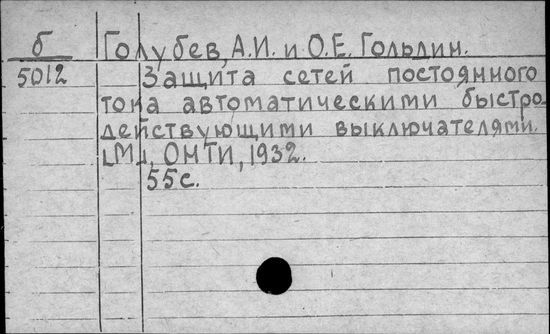 б Голубев, А.И. и О.Е. Гольдин.
5012 Защита сетей постоянного
тока автоматическими быстро-
действующими выключателями.
[М], ОНТИ, 1932.
55с.